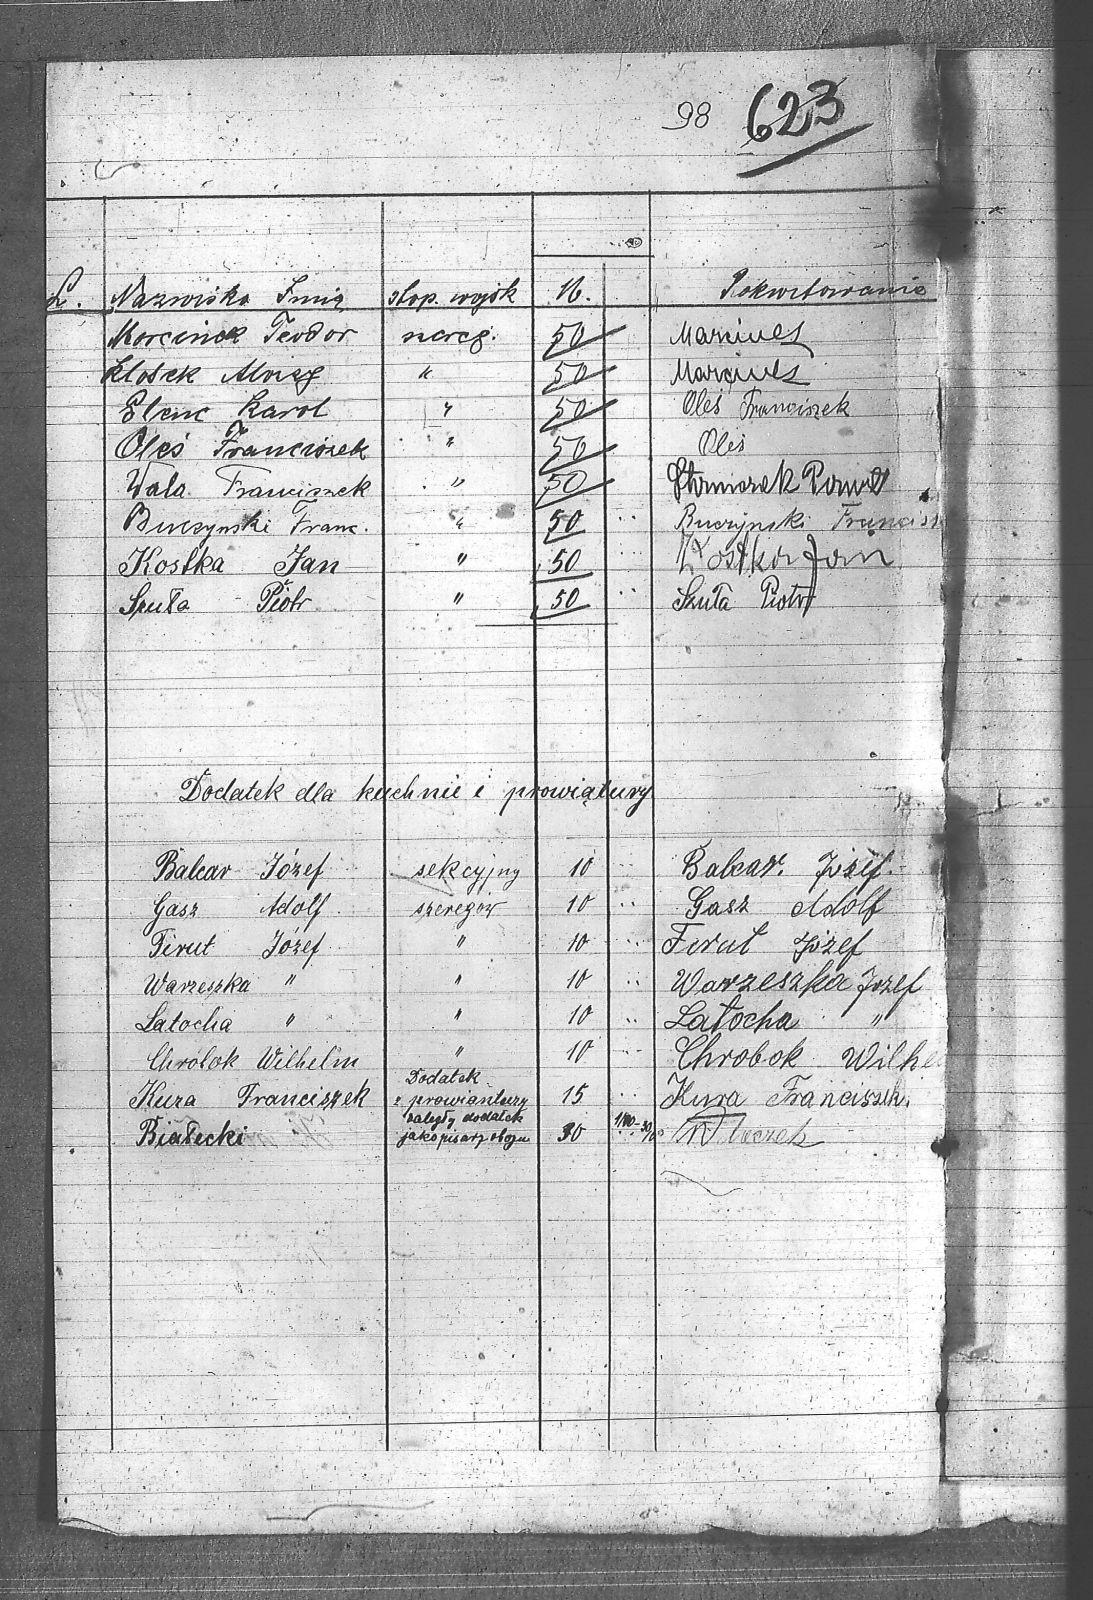 98 623
L. Nazwisko Imię stop. wojsk M. Pokwitowanie
Morcinek Teodor szereg. 50 Marcinek
Klosek Alojzy " 50 Marcinek
Elenc Karol " 50 Oleś Franciszek
Oleś Franciszek " 50 Oleś
Wala Franciszek " 50 Paweł
Buczynski Franc. " 50 Buczynski Francisz
Kostka Jan " 50 Kostka Jan
Szuła Piotr " 50 Szuła Piotr
Dodatek dla kuchnie i prowiątury
Balcar Józef sekcyjny 10 Balcar. Józef.
Gasz Adolf szeregow 10 Gasz Adolf
Firut Józef " 10 Firut Józef
Warzeszka " " 10 Warzeszka Jozef
Latocha " " 10 Latocha "
Chrobok Wilhelm " 10 Chrobok Wilhe
Dodatek
Kura Franciszek " prowiantury 15 Kura Franciszek.
zaległy dodatek
Białecki jako pisarz obozu 30